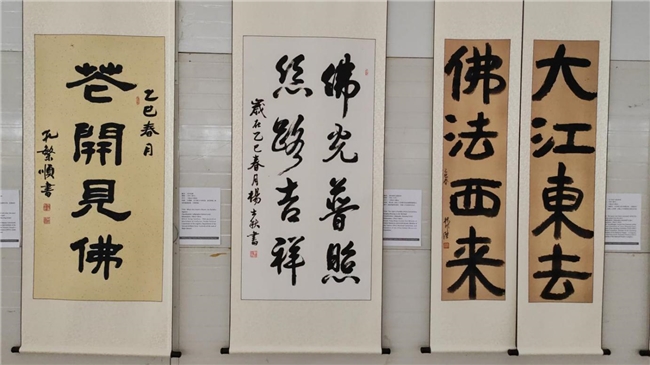 大江東去
佛法西来
佛光普照
絲路吉祥
歲在乙巳春月楊士秋書
乙巳春月
花開見佛
孔繁順書